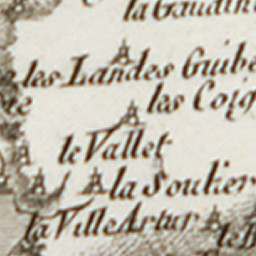 la Gaudin
les Landes Guibe
les Coig
le Vallet
la Soulier
la Ville Artur